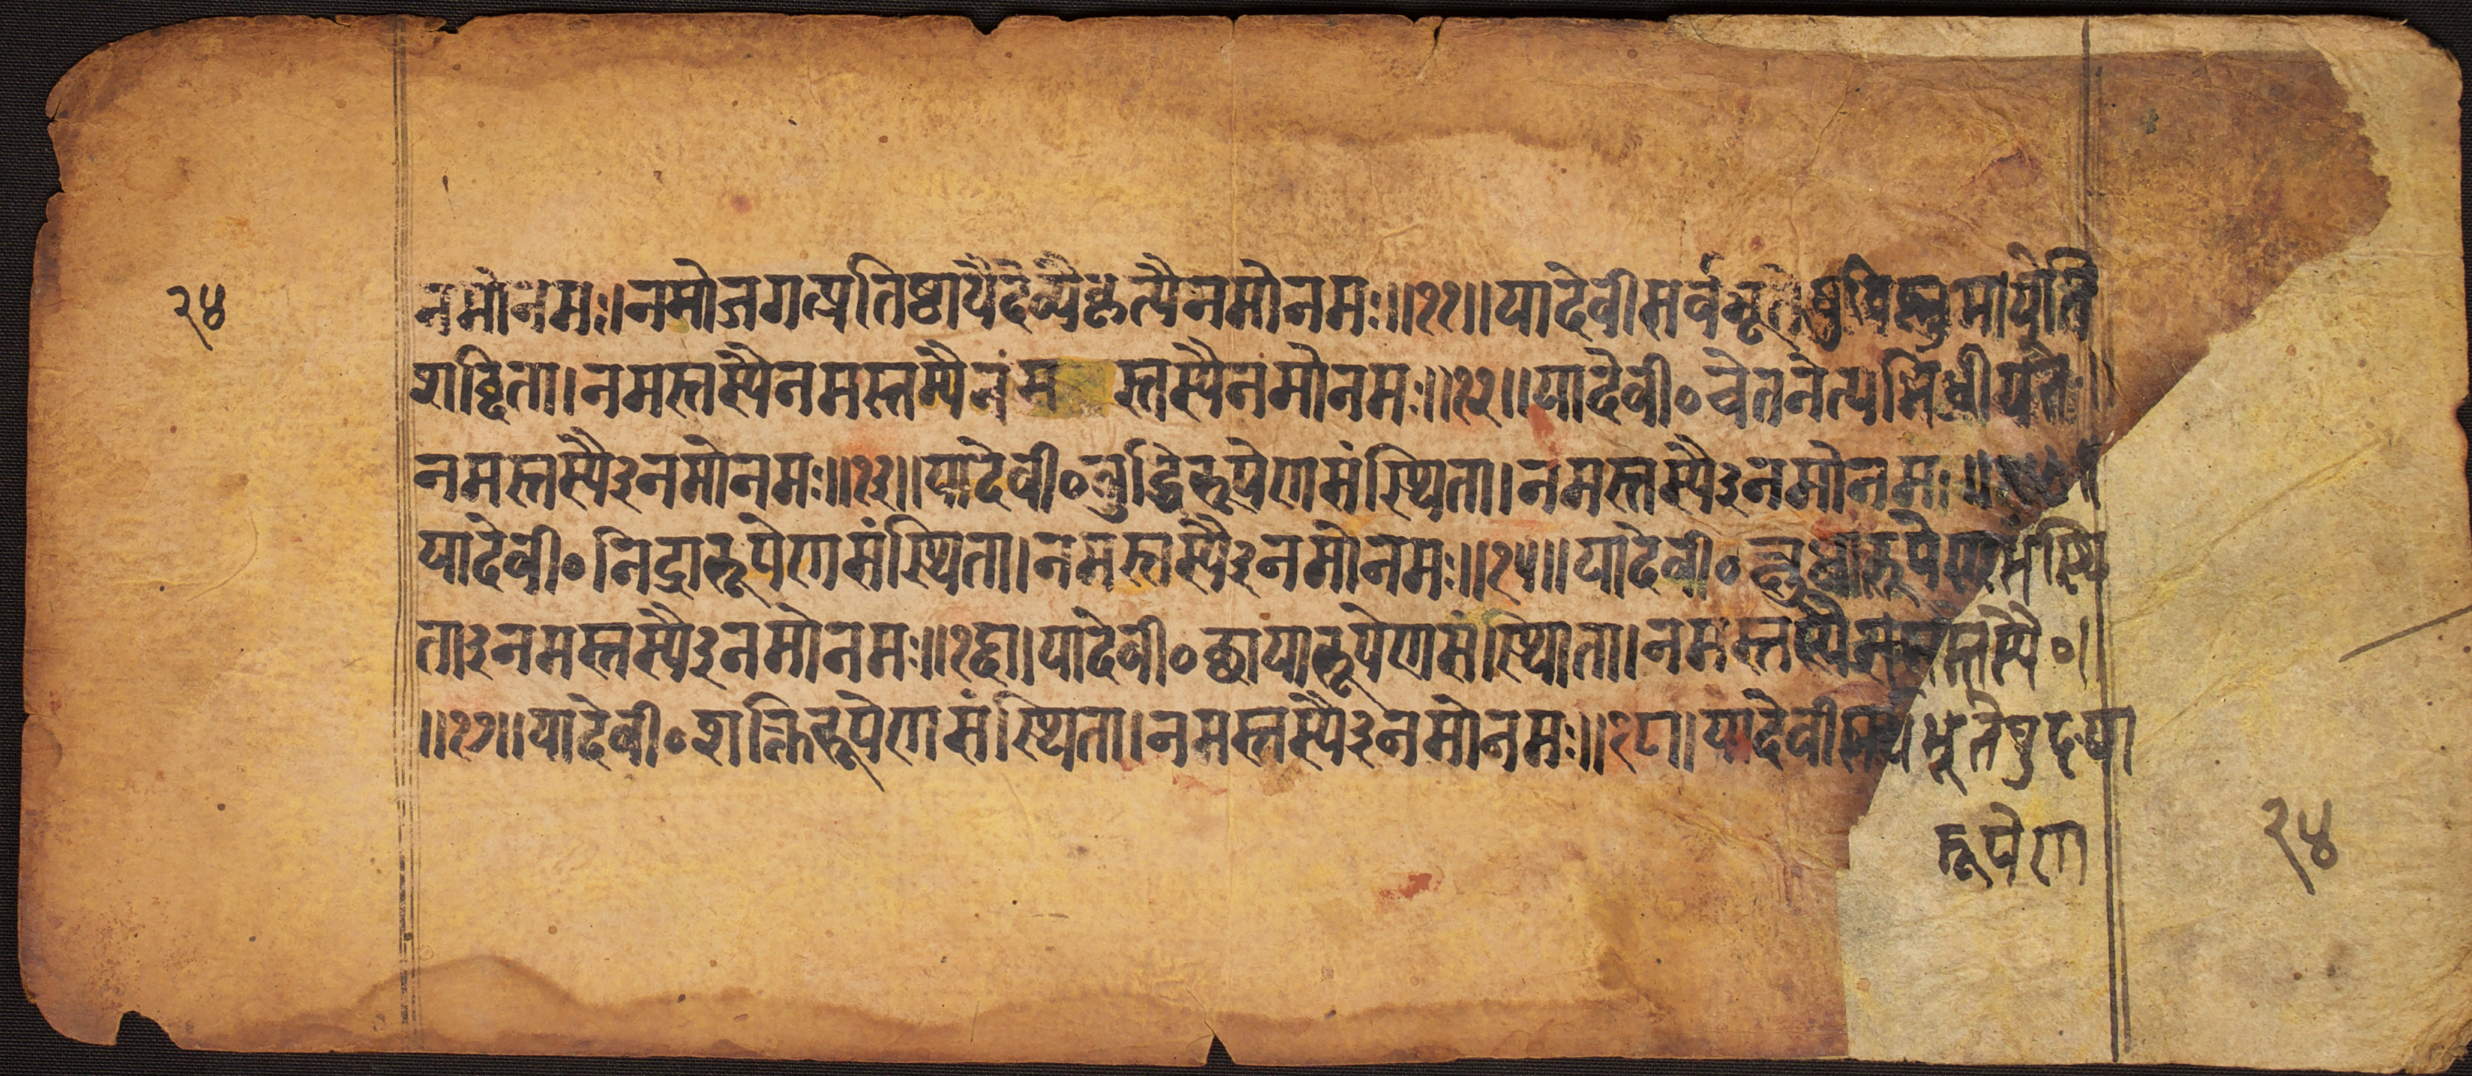 २४
नमोनमः।नमोजगत्प्रतिष्ठायैदेव्यैकृत्यैनमोनमः॥११॥यादेवीसर्वभूतेषुविष्णुमायेति
शब्दिता।नमस्तस्यैनमस्तस्यैनम स्तस्यैनमोनमः॥१२॥यादेवी०चेतनेत्यभिधीयते॥
नमस्तस्यै३नमोनमः॥१३॥यादेवी०बुद्धिरूपेणसंस्थिता।नमस्तस्यै३नमोनमः॥
यादेवी०निद्रारूपेणसंस्थिता।नमस्तस्यै३नमोनमः॥१५॥यादेवी०क्षुधारूपेणसंस्थि
ता३नमस्तस्यै३नमोनमः॥१६॥यादेवी०छायारूपेणसंस्थिाता।नमस्तस्यैनमस्तस्यै०॥
॥१७॥यादेवी०शक्तिरूपेणसंस्थिता।नमस्तस्यै३नमोनमः॥१८॥यादेवीसर्वभूतेषु
रूपेण
२४